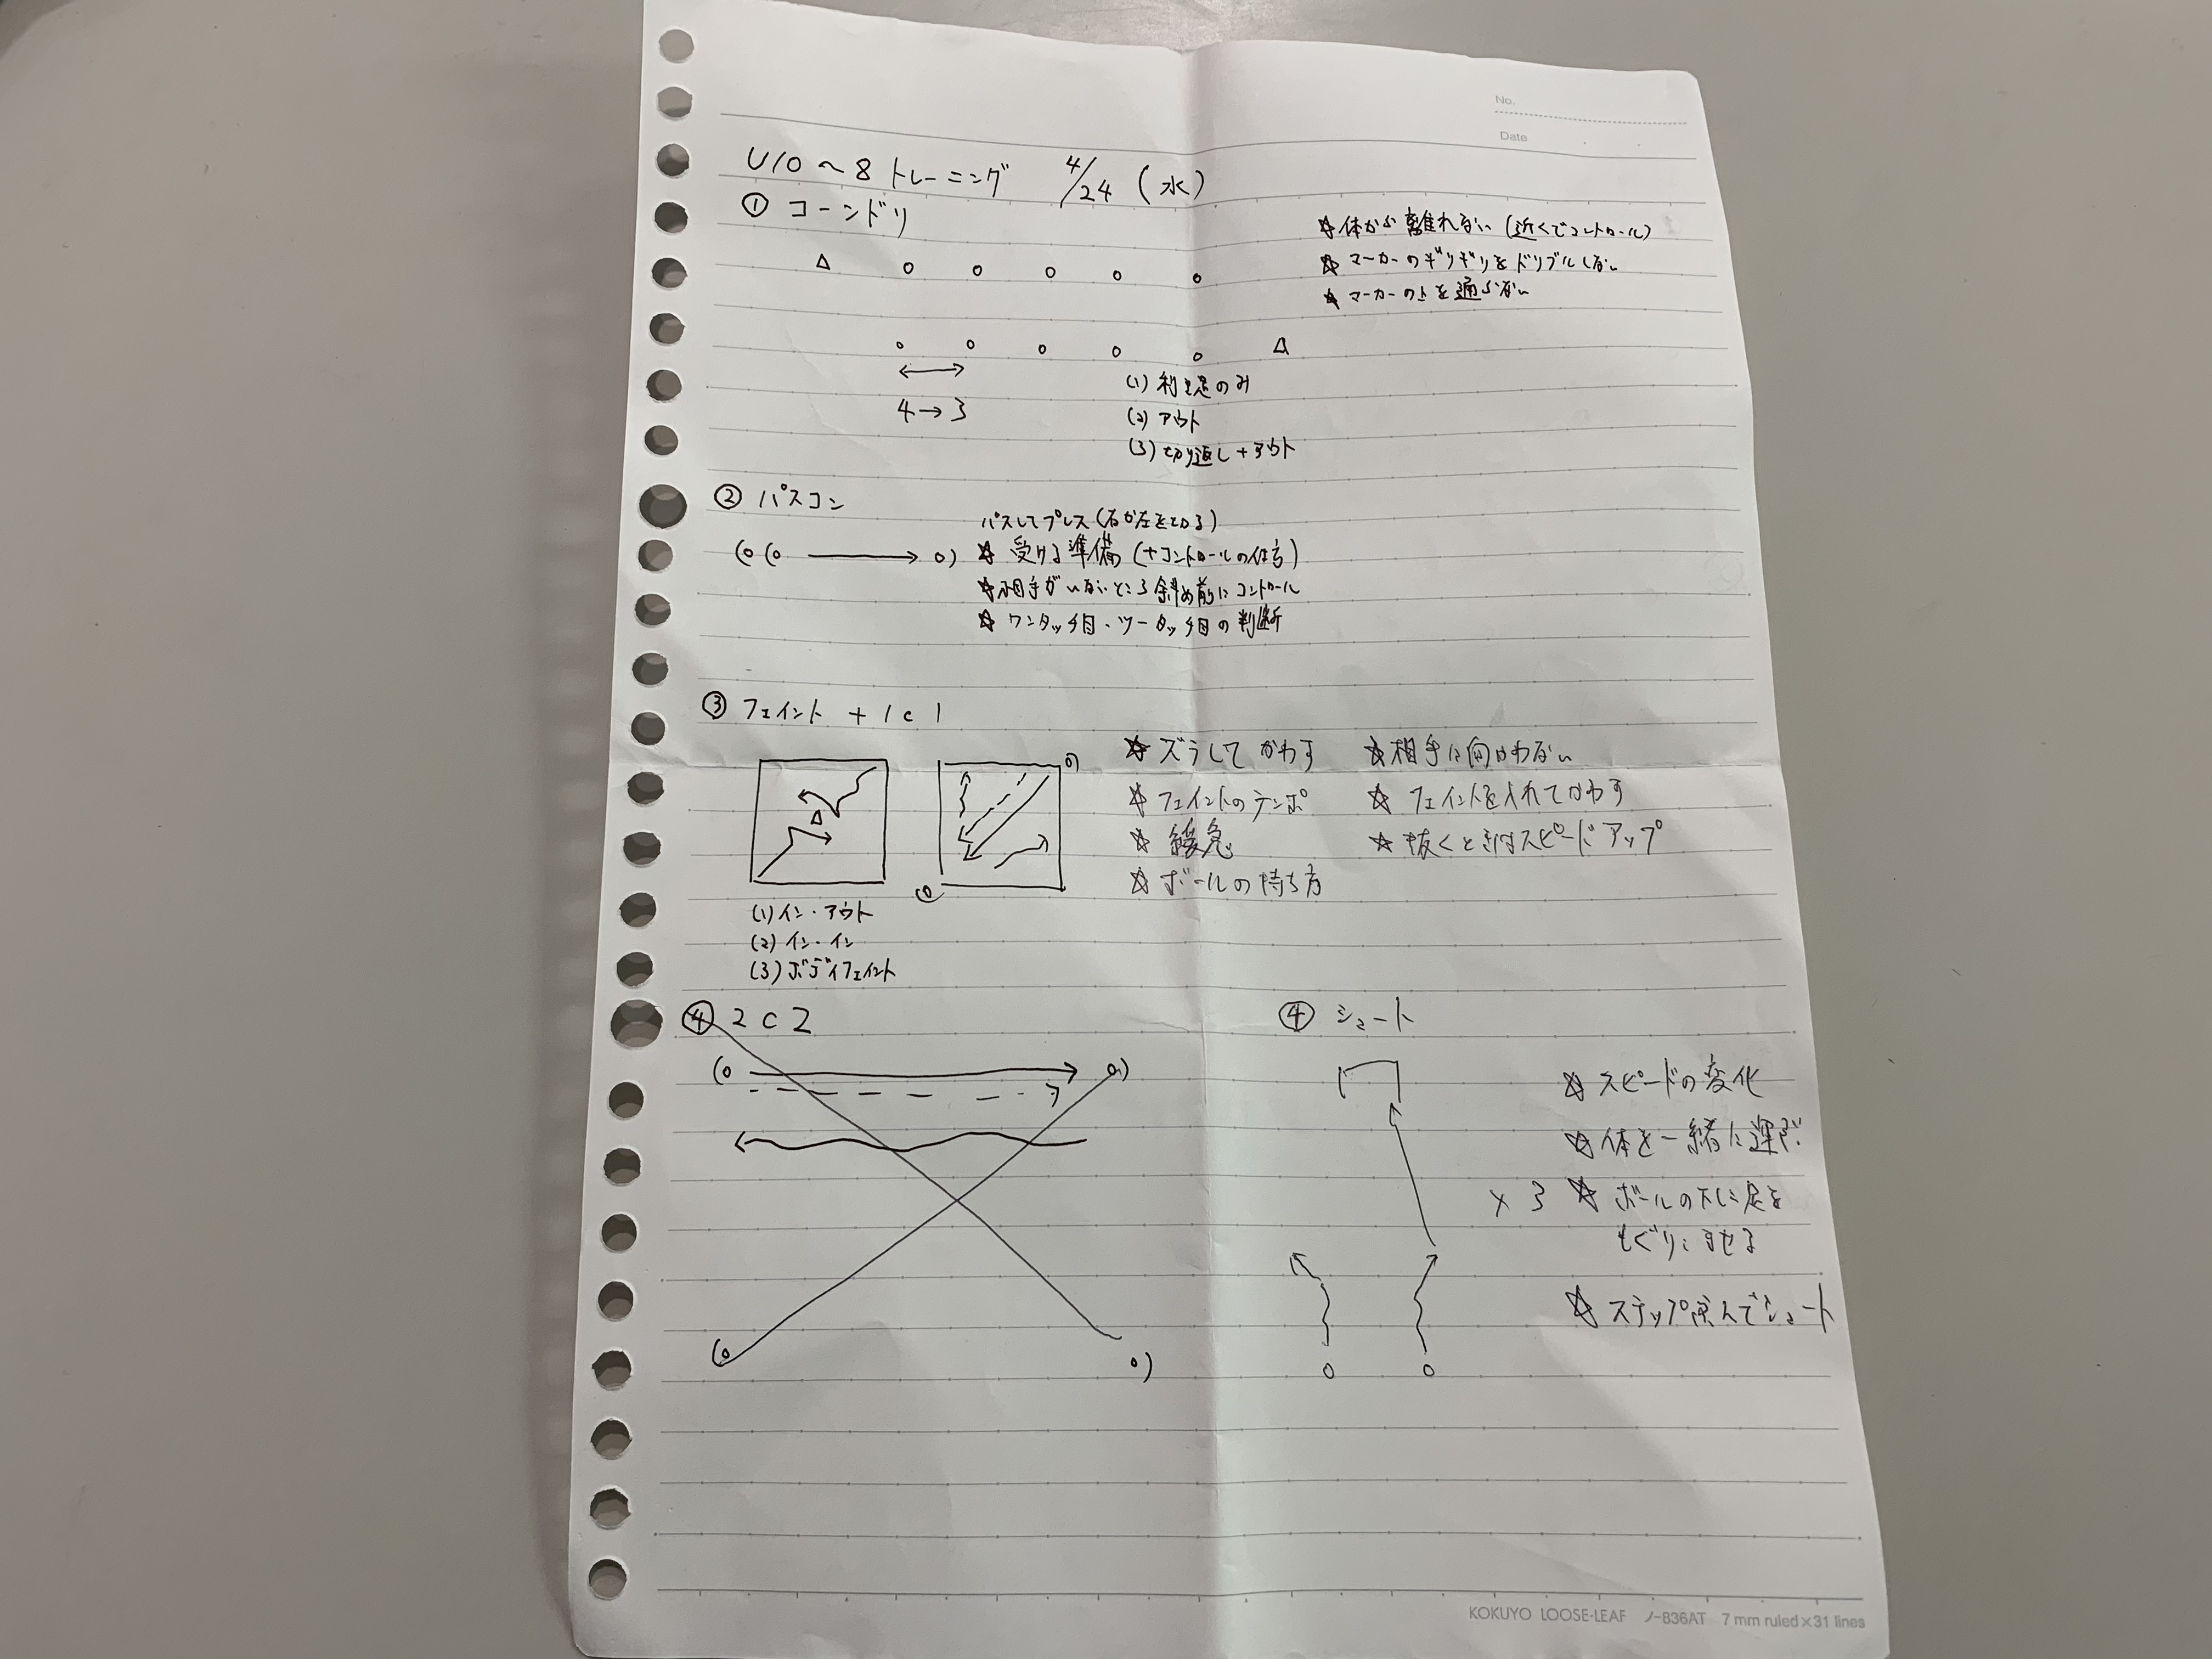 No.
Date
U10〜8 トレーニング 4/24 (水)
① コーンドリ
☆ 体から離れない (近くでコントロール)
☆ マーカーのギリギリをドリブルしない
☆ マーカーの上を通らない
4→3
(1) 利き足のみ
(2) アウト
(3) 切り返し + アウト
② パスコン
パスしてプレス (右か左をとる)
☆ 受ける準備 (+コントロールの
☆ 相手がいないところ 斜め前にコントロール
☆ ワンタッチ目・ツータッチ目の判断
③ フェイント + 1c1
☆ ズラしてかわす
☆ フェイントのテンポ
☆ 緩急
☆ ボールの持ち方
☆ 相手に向かわない
☆ フェイントを入れてかわす
☆ 抜くときはスピードアップ
(1) イン・アウト
(2) イン・イン
(3) ボディフェイント
④ 2c2
④ シュート
☆ スピードの変化
☆ 体を一緒に運ぶ
×3
☆ ボールの下に足を
もぐりこませる
☆ ステップ踏んでシュート
KOKUYO LOOSE-LEAF ノ-836AT 7 mm ruled×31 lines